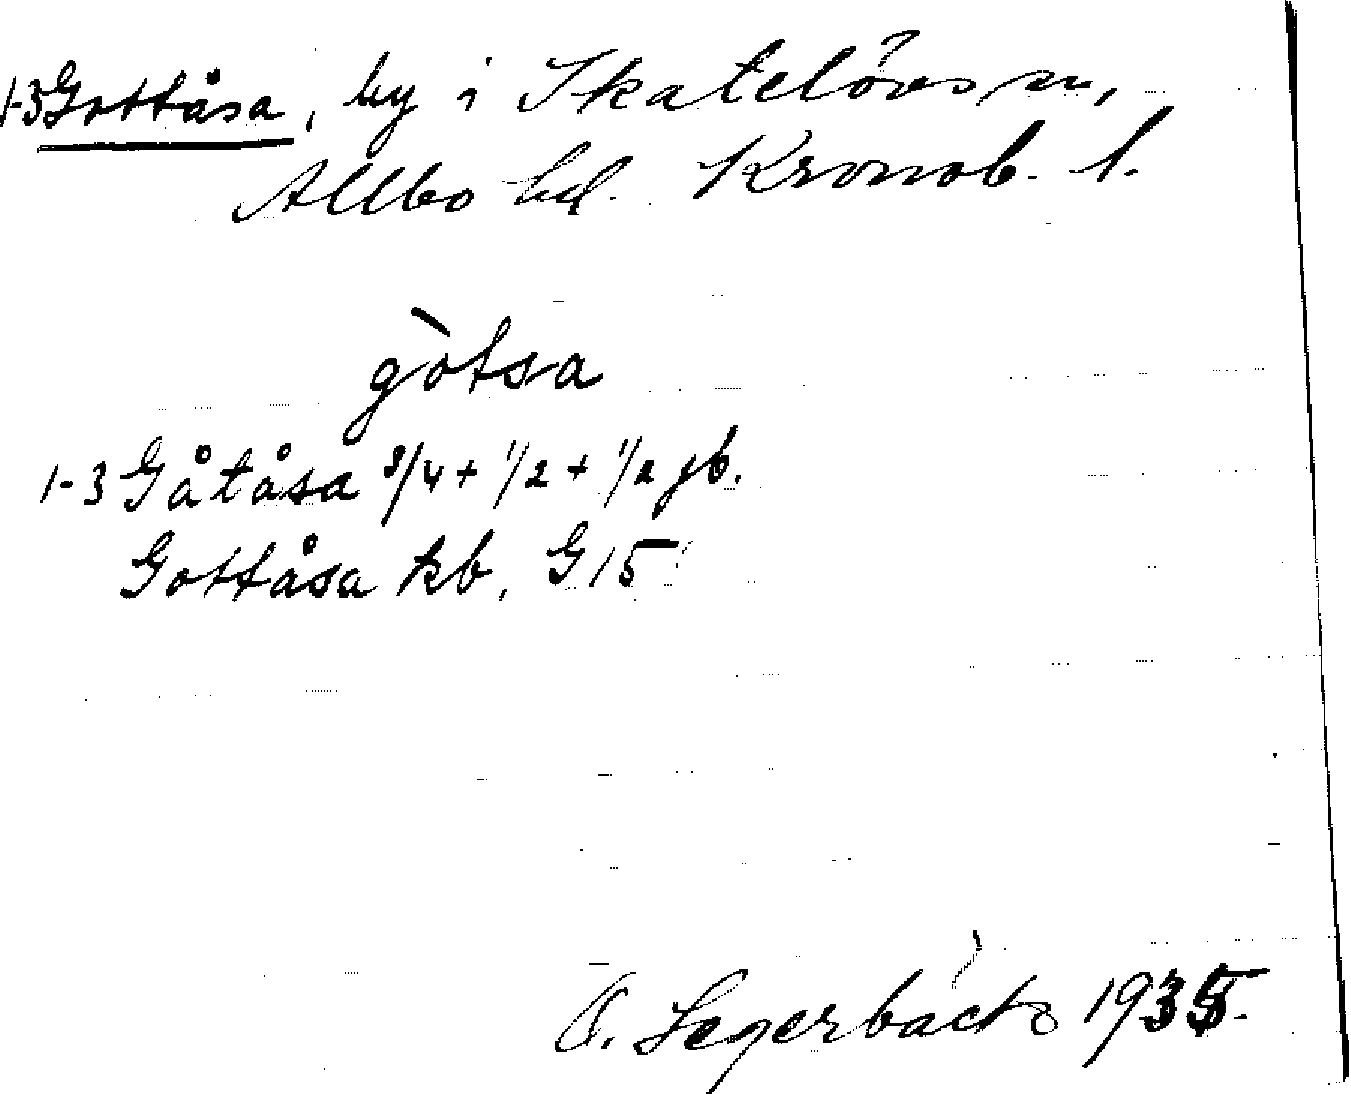 1-3 Gottåsa, by i Skatelövs sn,
Allbo hd. Kronob. l.
gòtsa
1-3 Gåtåsa 3/4 + 1/2 + 1/2 jb.
Gottåsa kb, G 15
O. Segerbäck 1935.